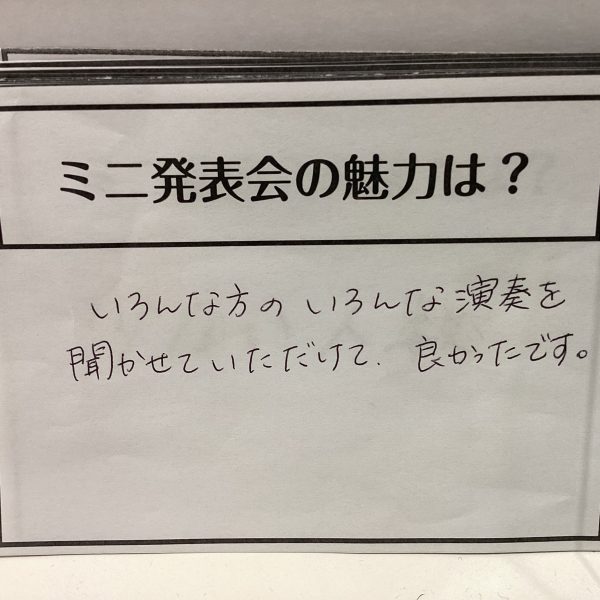 ミニ発表会の魅力は？
いろんな方のいろんな演奏を
聞かせていただけて、良かったです。